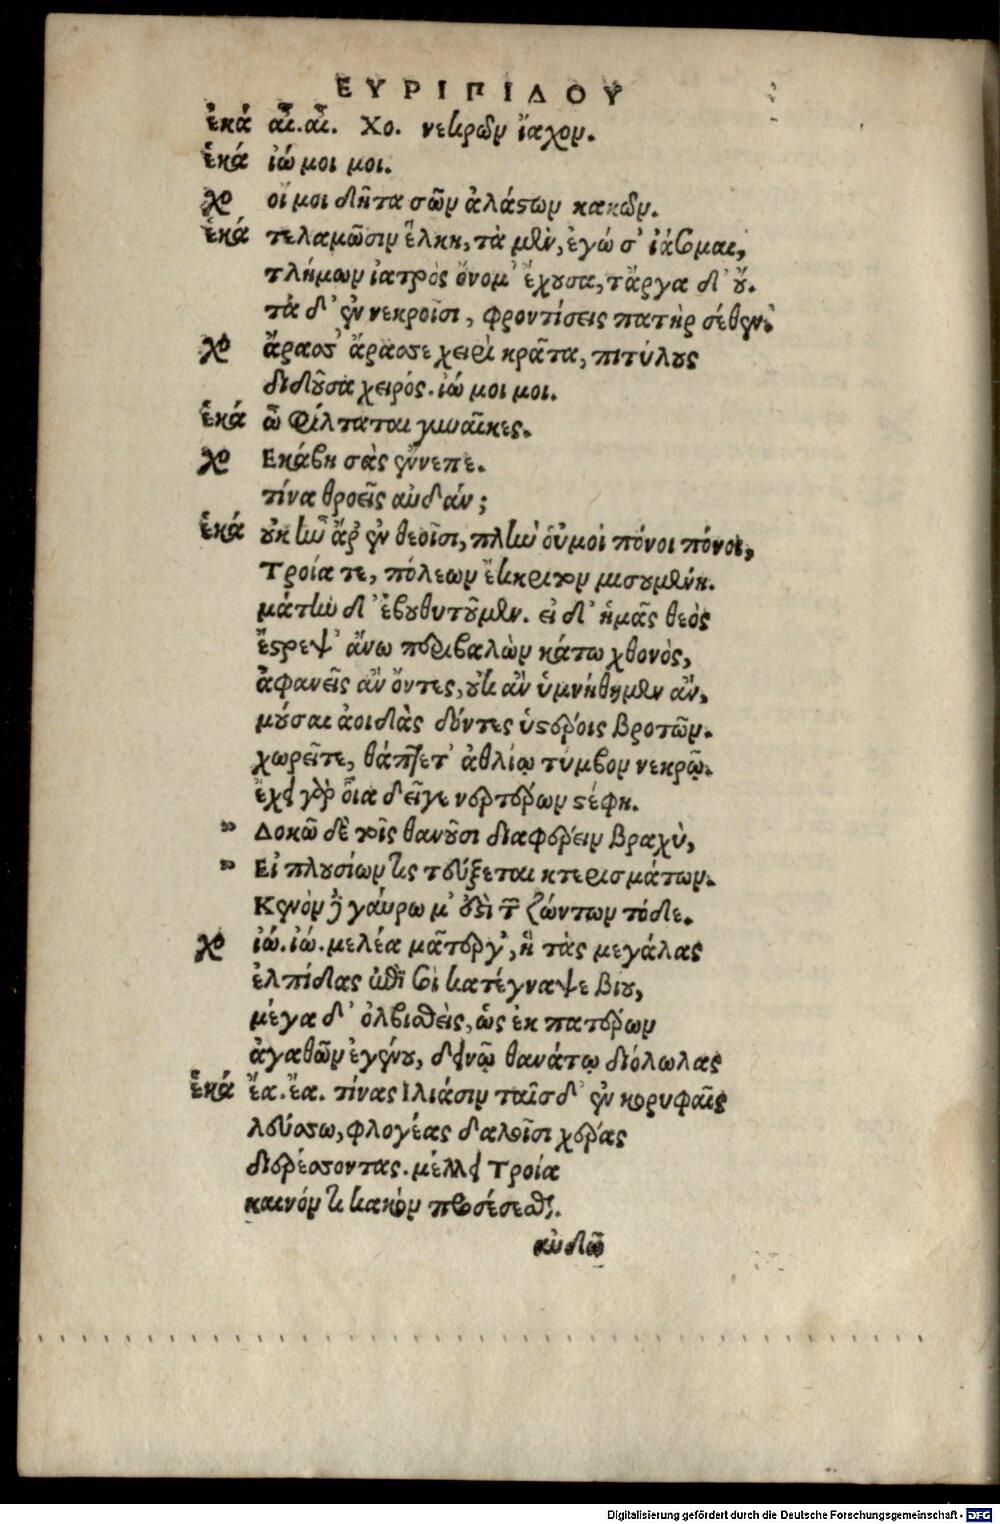 ΕΥΡΙΠΙΔΟΥ
ἑκά αἶ. αἶ. Χο. νεκρῶν ἴαχον.
ἑκά ἰώ μοι μοι.
χο οἴ μοι δῆτα σῶν ἀλάστων κακῶν.
ἑκά τελαμῶσιν ἕλκη, τὰ μὲν, ἐγώ σ' ἰάσομαι,
τλήμων ἰατρὸς ὄνομ' ἔχουσα, τἄργα δ' οὔ.
τὰ δ' ἐν νεκροῖσι, φροντίσεις πατὴρ σέθεν.
χο ἄρασσ' ἄρασσε χειρὶ κρᾶτα, πιτύλους
διδοῦσα χειρός. ἰώ μοι μοι.
ἑκά ὦ φίλταται γυναῖκες.
χο Εκάβη σὰς ἔννεπε.
τίνα θροεῖς αὐδάν;
ἑκά οὐκ ἦν ἄρ' ἐν θεοῖσι, πλὴν οὑμοὶ πόνοι πόνοι,
Τροία τε, πόλεων ἔκκριτον μισουμένη.
μάτην δ' ἐβουθυτοῦμεν. εἰ δ' ἡμᾶς θεὸς
ἔστρεψ' ἄνω περιβαλὼν κάτω χθονὸς,
ἀφανεῖς ἂν ὄντες, οὐκ ἂν ὑμνήθημεν ἂν,
μούσαι ἀοιδὰς δόντες ὑστέροις βροτῶν.
χωρεῖτε, θάπτετ' ἀθλίῳ τύμβον νεκρῷ.
ἔχει γὰρ οἷα δεῖγε νερτέρων στέφη.
" Δοκῶ δὲ τοῖς θανοῦσι διαφέρειν βραχὺ,
" Εἰ πλουσίων τις τεύξεται κτερισμάτων.
Κενὸν δὲ γαύρωμ' ἐστὶ τῶν ζώντων τόδε.
χο ἰώ. ἰώ. μελέα μᾶτερ γ', ἣ τὰς μεγάλας
ἐλπίδας ἐπὶ σοὶ κατέγναψε βίου,
μέγα δ' ὀλβισθεὶς, ὡς ἐκ πατέρων
ἀγαθῶν ἐγένου, δεινῷ θανάτῳ διόλωλας
ἑκά ἔα. ἔα. τίνας Ιλιάσιν ταῖσδ' ἐν κορυφαῖς
λεύσσω, φλογέας δαλοῖσι χέρας
διερέσσοντας. μέλλει Τροία
καινόν τι κακὸν προσέσεσθαι.
αὐδῶ
Digitalisierung gefördert durch die Deutsche Forschungsgemeinschaft - DFG